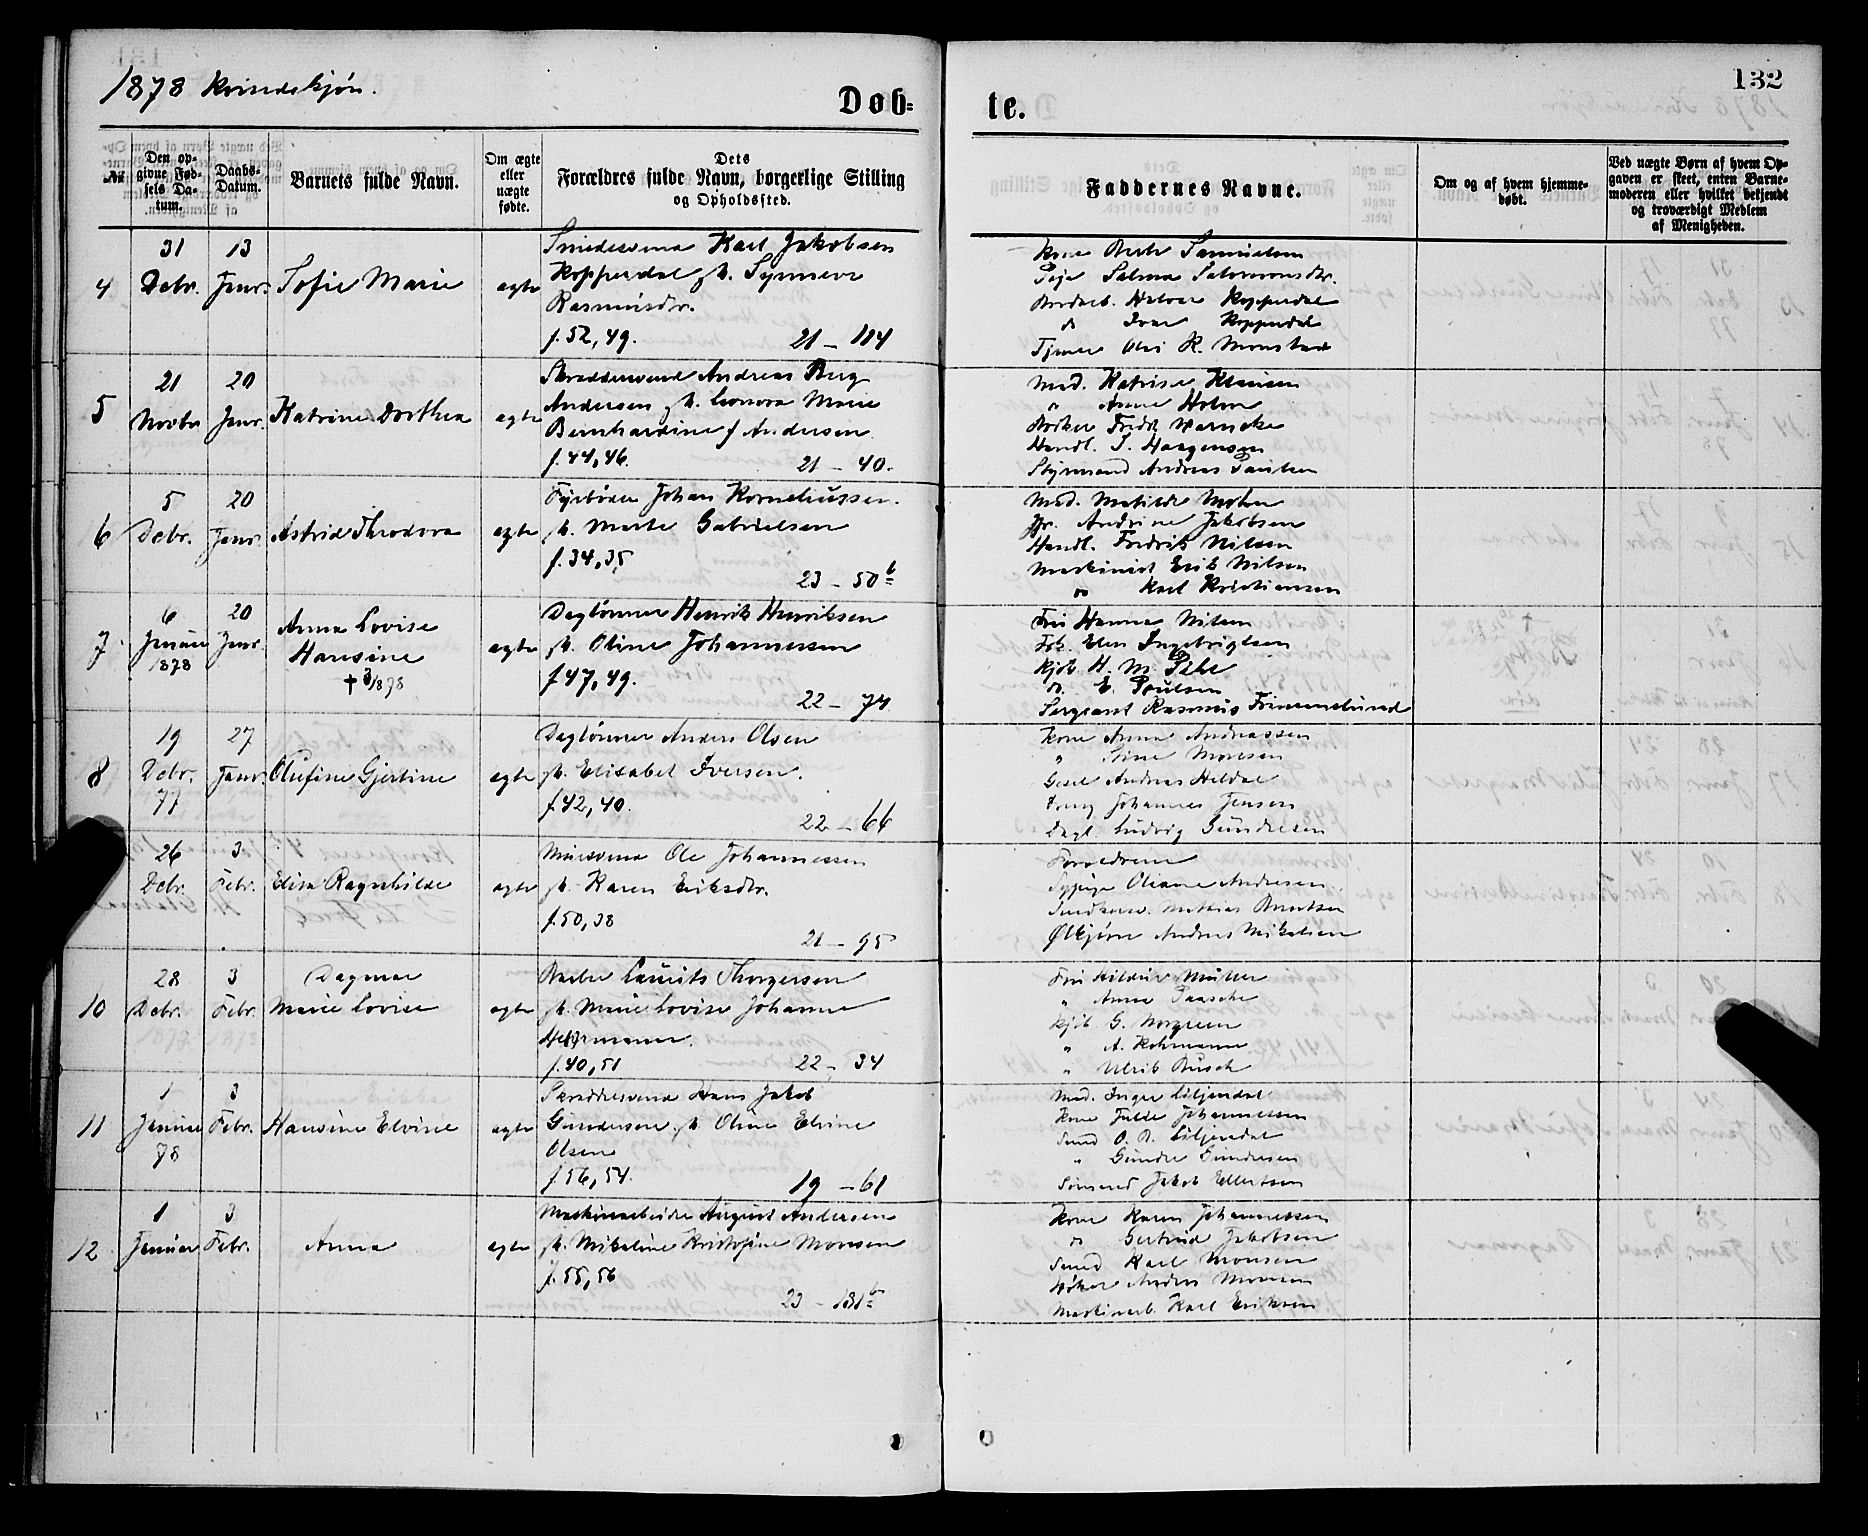 1878 Kvindekjøn.
132
Døb-
te.
No.
Den op-
givne Fød-
sels Da-
tum.
Daabs-
Datum.
Barnets fulde Navn.
Om ægte
eller
uægte
fødte.
Dets
Forældres fulde Navn, borgerlige Stilling
og Opholdssted.
Faddernes Navne.
Om og af hvem hjemme-
døbt.
Ved uægte Børn af hvem Op-
gaven er skeet, enten Barne-
moderen eller hvilket bekjendt
og troværdigt Medlem
af Menigheden.
4
31
Debr.
13
Janr.
Sofie Marie
ægte
Smedesvend Karl Jakobsen
Kopperdal og h. Synneve
Rasmusdr.
f. 52, 49.
21 - 114
Kone Berte Samuelsen
Pige Salmea Salomonsdr.
Halvor Kopperdal
do Ivar Kopperdal
Tjener Olai K. Monstad
5
21
Novbr
20
Janr.
Katrine Dorthea
ægte
Skræddersvend Andreas Berg
Andersen og h. Leonora Marie
Bernhardine f Andersen
f. 44, 46.
21 - 40.
Mad. Katrine Klausen
" Anne Holm
Bødker Fredr. Warncke
Handl. J. Haagensen
Styrmand Andreas Paulsen
6
5
Debr.
20
Janr.
Astrid Theodora
ægte
Fyrbøder Johan Korneliussen.
h. Marte Gabrielsen
f. 34, 35
23 - 50 b
Mad. Matilde Mohn
Jfr. Andrine Jakobsen
Handl. Fredrik Nilsen
Maskinist Erik Nilsen
do Karl Kristiansen
7
6
Januar
1878
20
Janr.
Anna Lovise
Hansine
† 3/8 98
ægte
Daglønner Henrik Henriksen
h. Oline Johannessen
f 47, 49.
22 - 74
Fru Hanna Nilsen
Frk. Elen Ingebrigtsen
Kjøb. H. M. Pihl
do. E. Poulsen
Sergeant Rasmus
8
19
Debr.
77
27
Janr.
Olufine Gjertine
ægte
Daglønner Anders Olsen
h. Elisabet Iversen.
f. 42, 40.
22 - 66
Kone Anna Andreassen
" Stine Monsen
Gesel Andreas Heldal
Johannes Jensen
Dagl. Ludvig Gundersen
26
Debr.
3
Febr.
Elisa Ragnhilde
ægte
Murersvend Ole Johannessen
h. Karen Eriksdr.
f. 50, 38
21 - 95
Forældrene
Sypige Oliane Andresen
Snedkersv. Mathias Berntsen
Ølkjører Andreas Mikalsen
10
28
Debr.
3
Febr.
Dagmar
Marie Lovise
ægte
Barber Laurits Thorgersen
h. Marie Lovise Johanne
Hermann.
f. 40, 51
22 - 34
Fru Hildur Müller
" Anna Paasche
Kjøb G. Norgreen
" A. Rohmann
" Ulrik Busch
11
1
Januar
78
3
Febr.
Hansine Elvine
ægte
Skræddersvend Hans Jakob
Gundersen h. Oline Elvine
Olsen
f. 56, 54.
19 - 61
Mad. Inger Liljendal
Kone Hulde Johannessen
Smed O. B. Liljendal
" Gunder Gundersen
Sømand Jakob Ellertsen
12
1
Januar
3
Febr.
Anna
ægte
Maskinarbeider August Andersen
h. Mikaline Kristofine Monsen
f. 55, 56
23 - 181 b
Kone Karen Johannessen
do Gertrud Jakobsen
Smed Karl Monsen
Høker Andres Monsen
Maskinarb. Karl Eriksen